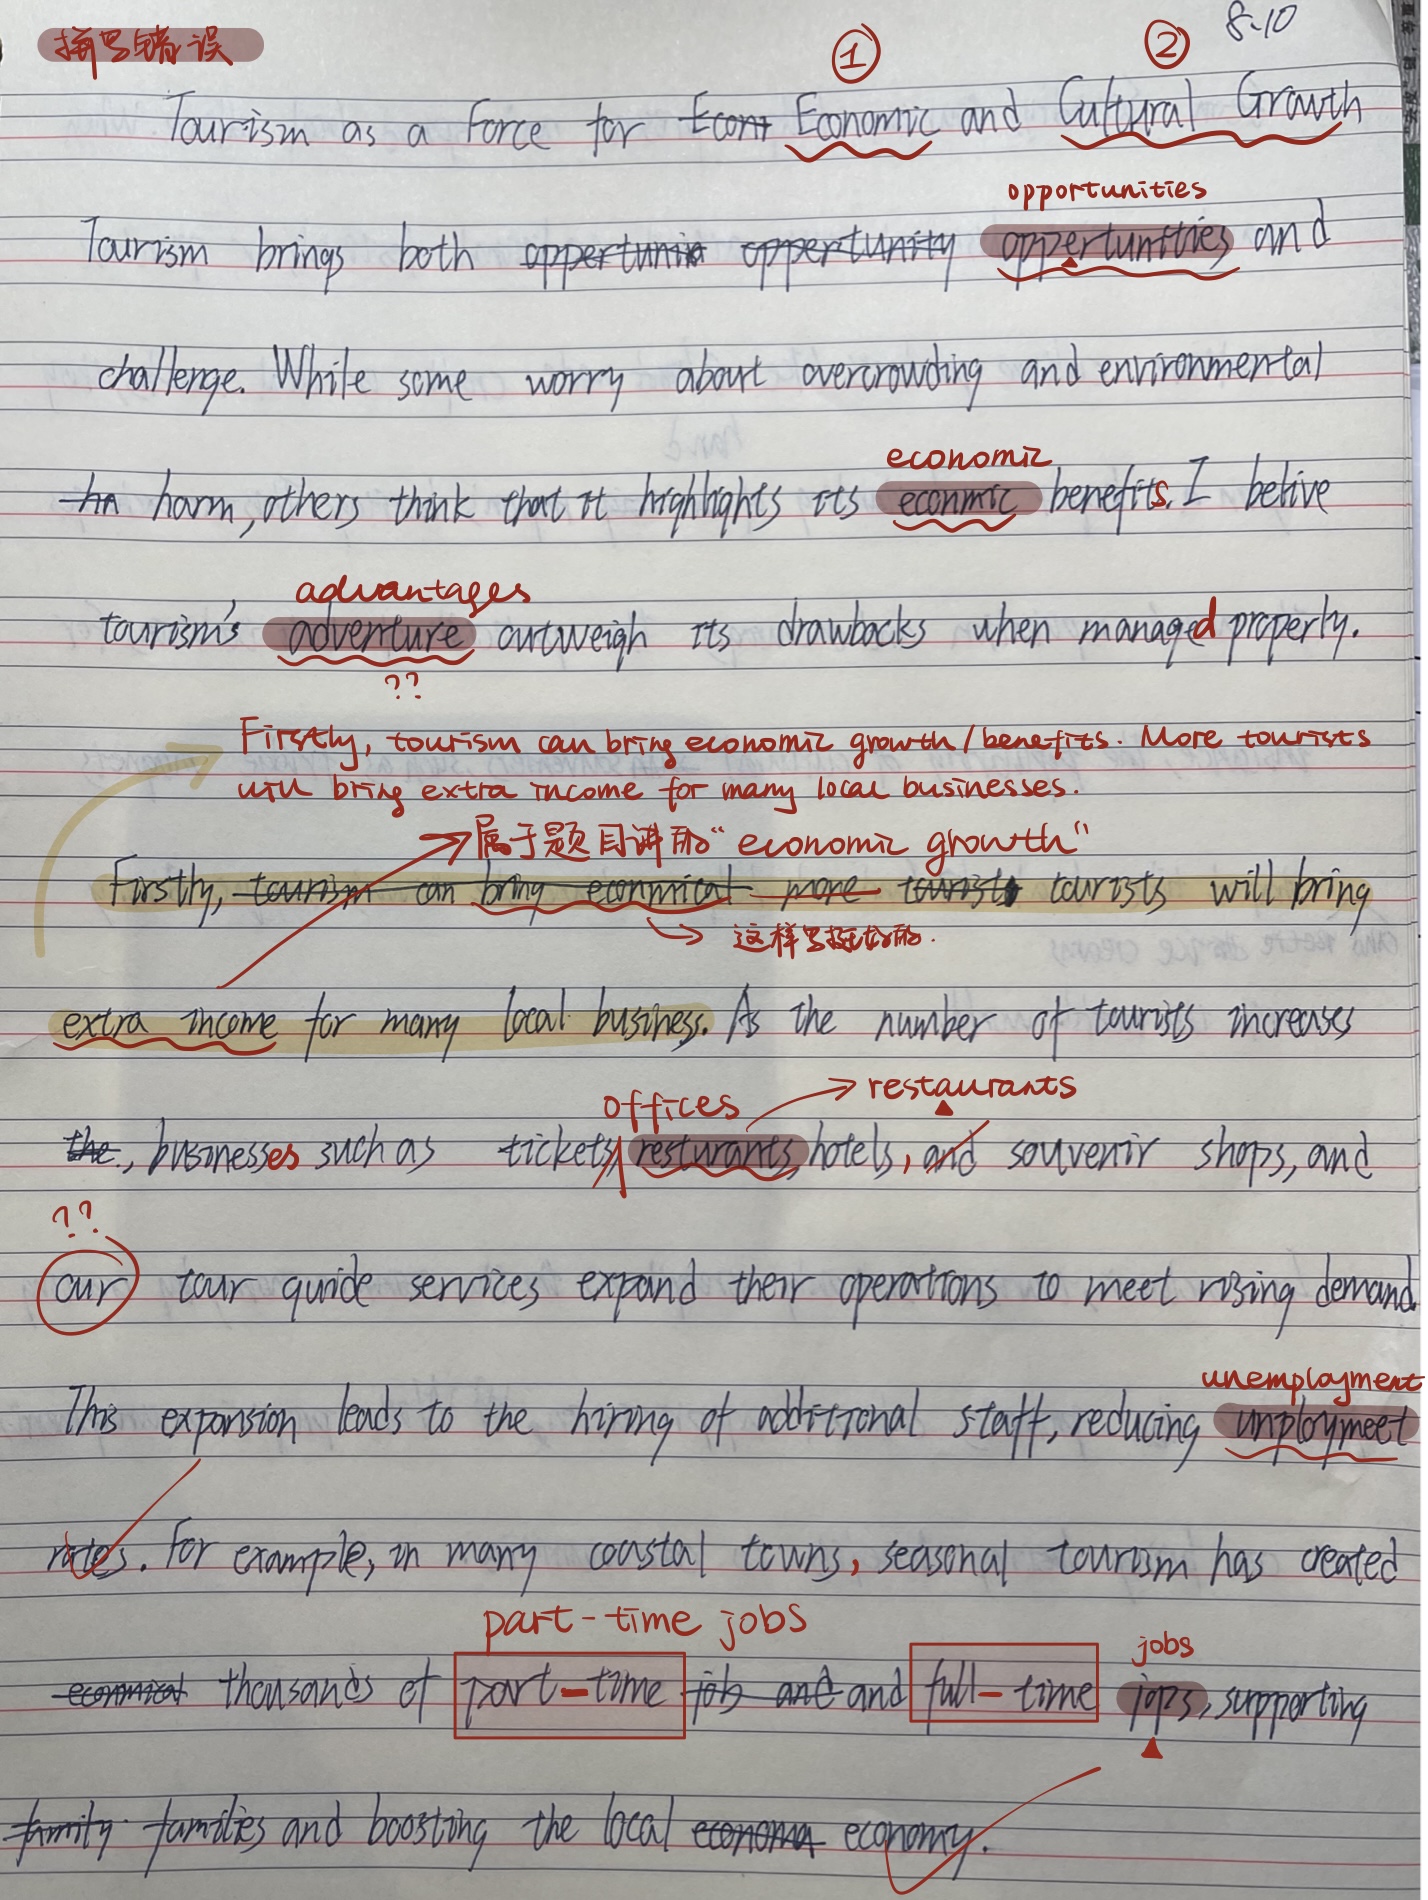 拼写错误
① ② 8.10
Tourism as a Force for Econ Economic and Cultural Growth
opportunities
Tourism brings both oppertunia oppertunity oppertunities and
challenge. While some worry about overcrowding and environmental
economic
ha harm, others think that it highlights its econmic benefits. I belive
advantages
tourism's adventure outweigh its drawbacks when managed properly.
??
Firstly, tourism can bring economic growth/benefits. More tourists
will bring extra income for many local businesses.
属于题目讲的“economic growth”
Firstly, tourism can bring econmical more tourists tourists will bring
这样写挺好的.
extra income for many local business. As the number of tourists increases
offices restaurants
the, businesses such as tickets, resturants hotels, and souvenir shops, and
??
our tour guide services expand their operations to meet rising demand.
unemployment
This expansion leads to the hiring of additional staff, reducing unploymeet
rates. For example, in many coastal towns, seasonal tourism has created
part-time jobs jobs
econmical thousands of part-time job and and full-time jops, supporting
family families and boosting the local economa economy.